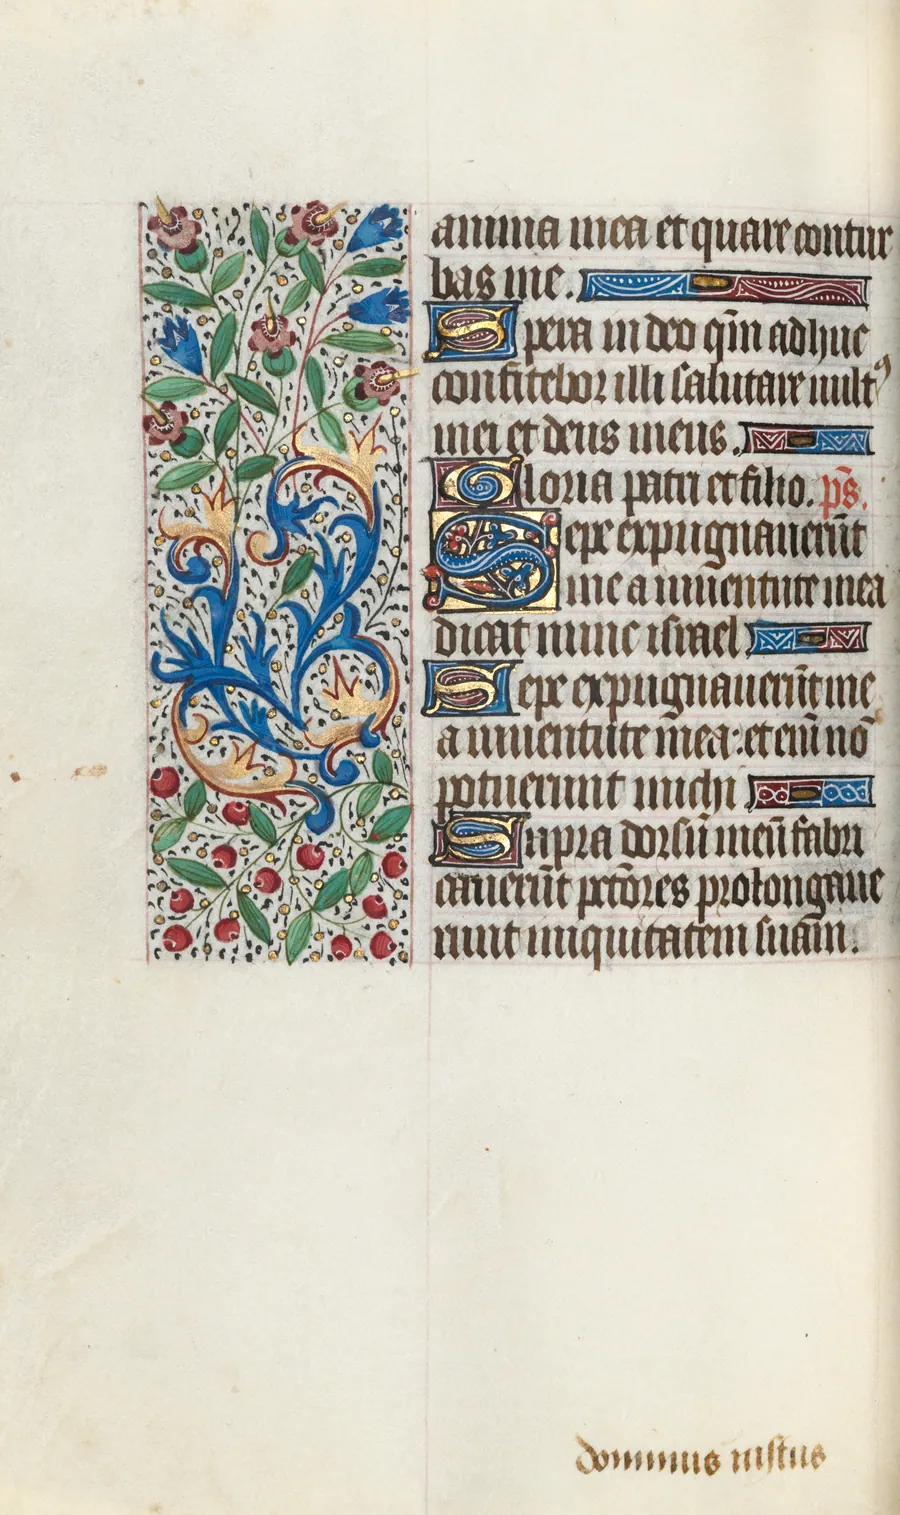 anima mea et quare contur
bas me.
Spera in deo qm̄ adhuc
confitebor illi salutare vultꝰ
mei et deus meus.
Gloria patri et filio. ps̄.
Sepe expugnauerūt
me a iuuentute mea
dicat nunc israel
Sepe expugnauerūt me
a iuuentute mea: etem̄ nō
potuerunt michi
Supra dorsū meū fabri
cauerūt pctōres prolongaue
runt iniquitatem suam.
dominus iustus